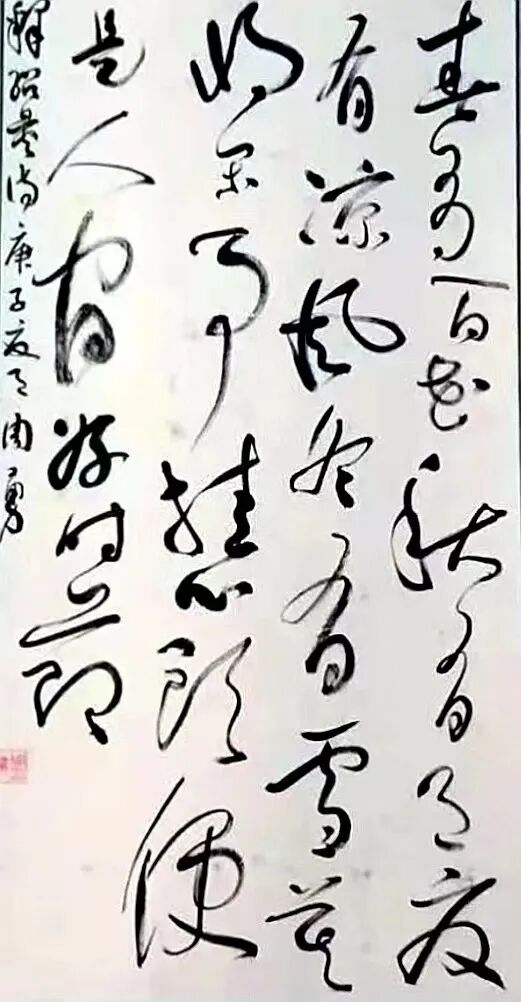 春有百花秋有月夏
有凉风冬有雪莫
将闲事挂心头便
是人间好时节
释绍昙诗庚子夏月周勇